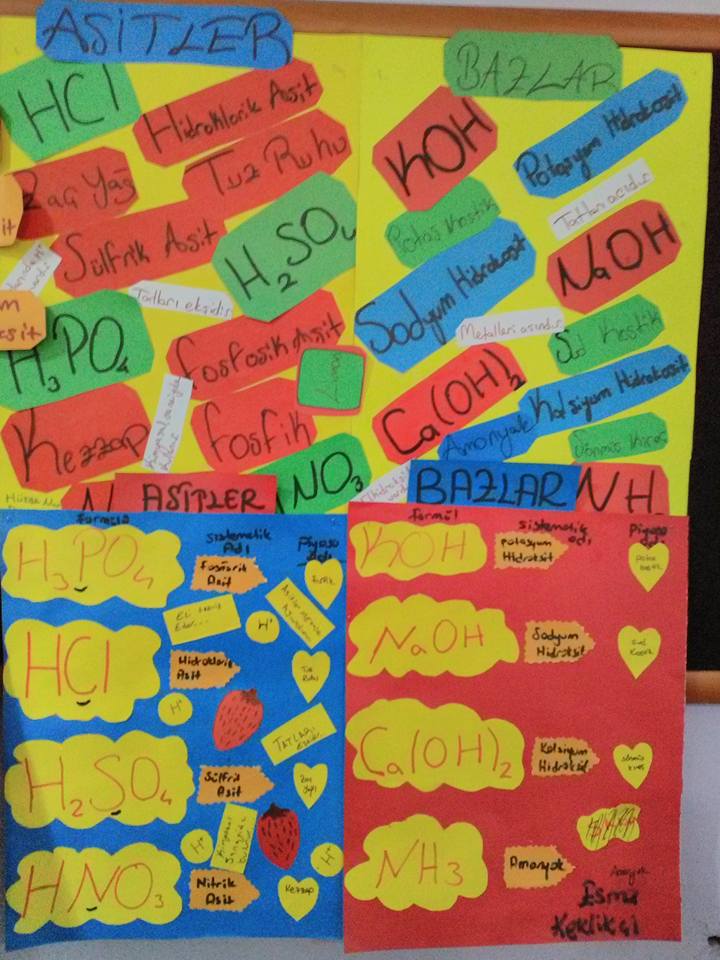 ASİTLER
HCl
Hidroklorik Asit
Zaç Yağ
Tuz Ruhu
Sülfrik Asit
H₂SO₄
it
m
asit
Tatları ekşidir
H₃PO₄
fosfosik Asit
Limon
Kezzap
fosfik
NO₃
BAZLAR
KOH
Potasyum Hidroksit
Potas Kostik
Tatları acıdır
Sodyum Hidroksit
NaOH
Metalleri asındır
Sud Kostik
Ca(OH)₂
Kalsiyum Hidroksit
Amonyak
Sönmüş Kireç
N
ASİTLER
formül
sistematik
Adı
Piyasa
adı
H₃PO₄
fosforik
Asit
H⁺
HCl
Hidroklorik
Asit
Tuz
Ruhu
H⁺
TATLARI
H₂SO₄
Sülfrik
Asit
Zaç
yağı
H⁺
H⁺
HNO₃
Nitrik
Asit
Kezzap
BAZLAR
NH
formül
sistematik
adı
Piyasa
adı
KOH
potasyum
Hidroksit
potas
kostik
NaOH
Sodyum
Hidroksit
Sud
Kostik
Ca(OH)₂
Kalsiyum
Hidroksit
sönmüş
kireç
NH3
Amonyak
Amonyak
Esma
Keklikçi